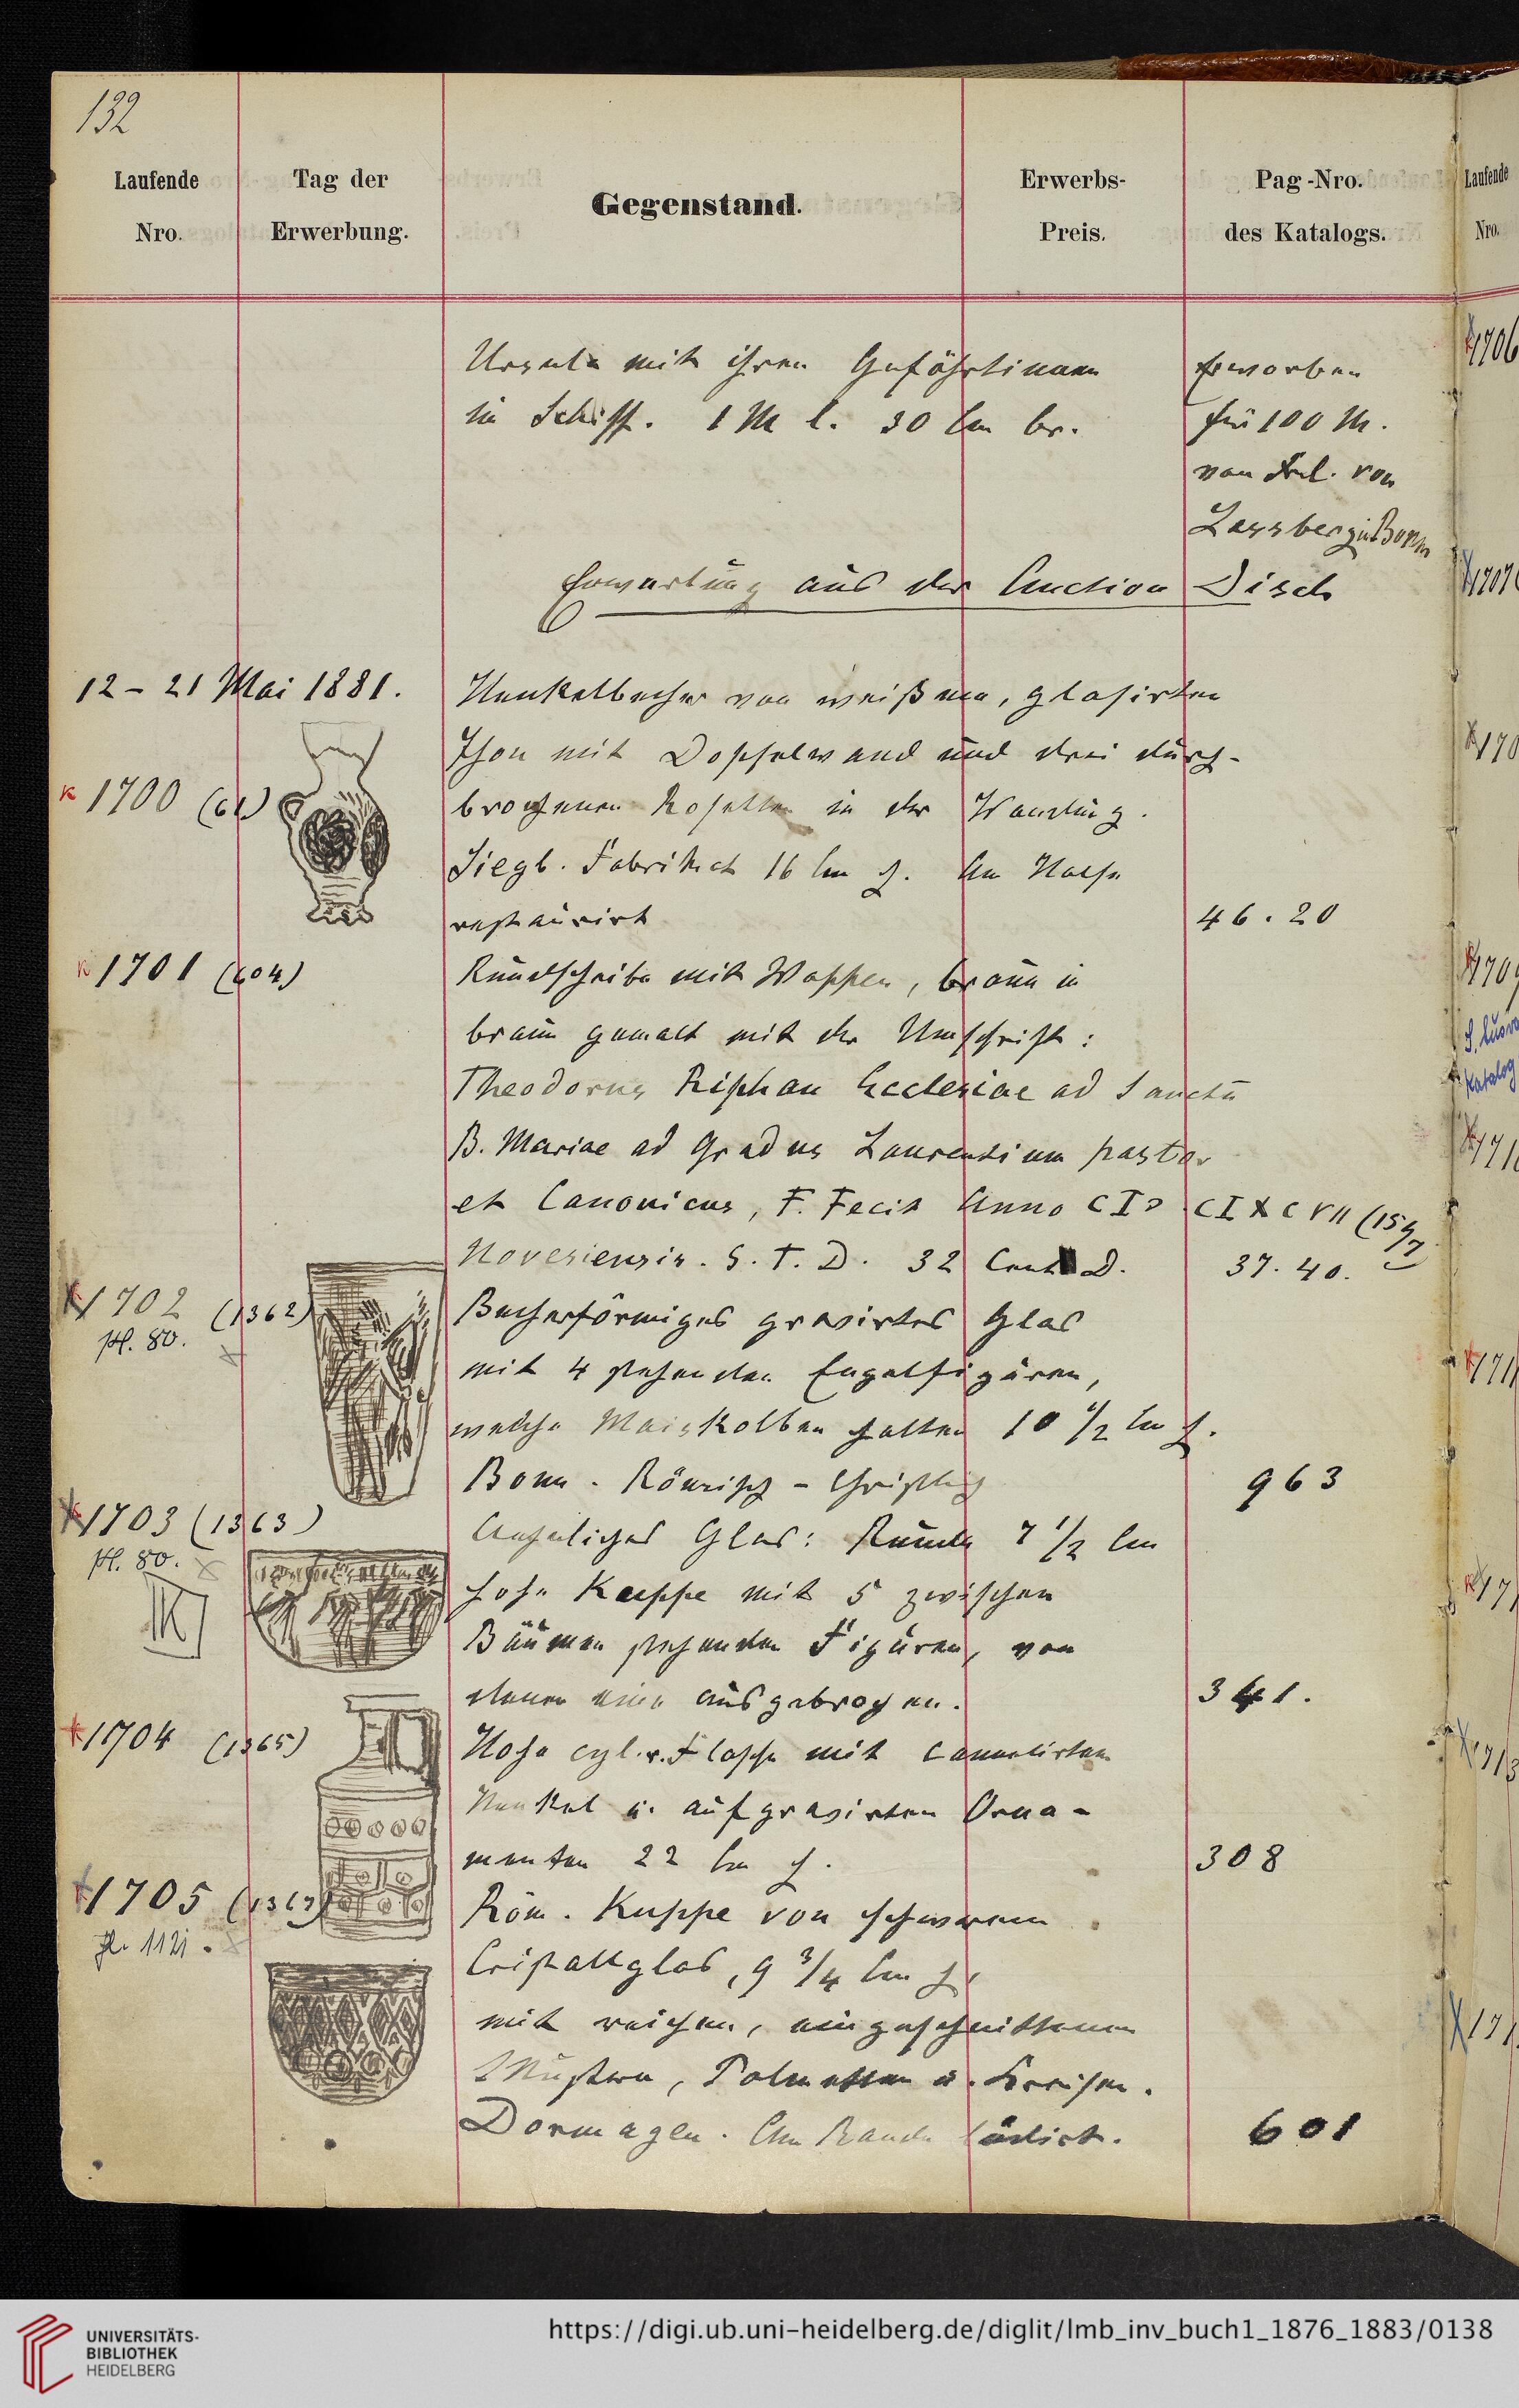 132
Laufende Nro.
Tag der Erwerbung.
Gegenstand.
Erwerbs-Preis.
Pag-Nro. des Katalogs.
Ursula mit ihren Gefährtinnen
im Schiff. 1 M l. 30 Cm br.
Erworben
für 100 M.
von Frl. von
Lassberg in Bonn
Erwerbung aus der Auction Disch
12 – 21 Mai 1881.
Henkelbecher von weißem, glasirten
K 1700
Thon mit Doppelwand und drei durch-
brochenen Rosetten in der Wandung.
Siegb. Fabrikat 16 Cm h. Am Halse
restaurirt
46.20
K 1701 (404)
Rundscheibe mit Wappen, braun in
braun gemalt mit der Umschrift:
Theodorus Riphan Ecclesiae ad Sanctū
B. Mariae ad Gradus Laurentium pastor
et Canonicus, F. Fecit Anno CIↃ CIXCVII (1597
Novesiensis. S. T. D. 32 Cent D.
37.40.
K 1702 (1362)
Pl. 80.
Becherförmiges gravirtes Glas
mit 4 stehenden Engelfiguren,
welche Maiskolben halten 10 1/2 Cm h.
Bonn. Römisch - Christlich
963
K 1703 (1363)
Pl. 80.
K
Aehnliches Glas: Runde 7 1/2 Cm
hohe Kuppe mit 5 zwischen
Bäumen stehenden Figuren, von
denen eine ausgebrochen.
341.
K 1704 (1365)
Hohe cyl. r. Flasche mit cannelirtem
Henkel u. aufgravirten Orna-
menten 22 Cm h.
308
1705
Röm. Kuppe von schwerem
Cristallglas, 9 3/4 Cm h,
mit reichen, eingeschnittenen
Mustern, Palmetten u. Kreisen.
Dormagen. Am Rande lädirt.
601
Laufende
Nro.
1706
1707
170
170
Katalog
171
171
17
UNIVERSITÄTS-
BIBLIOTHEK
HEIDELBERG
https://digi.ub.uni-heidelberg.de/diglit/lmb_inv_buch1_1876_1883/0138